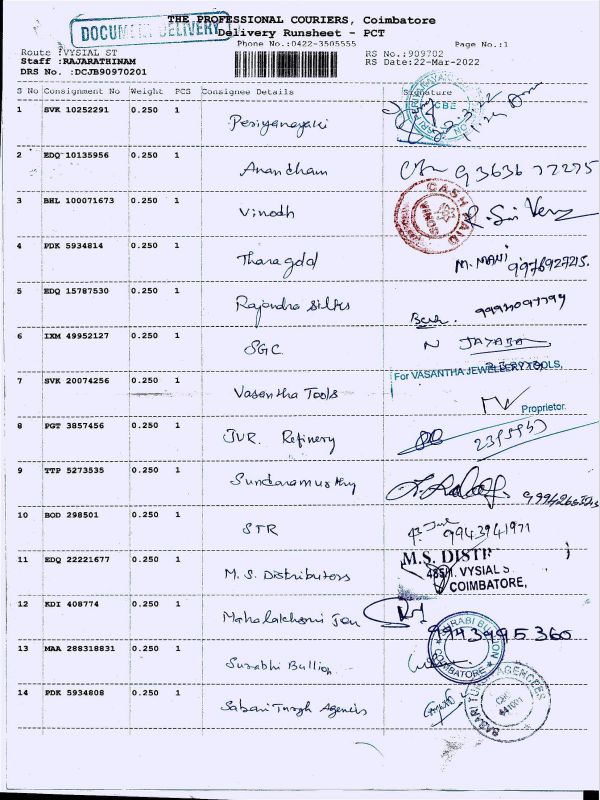 THE PROFESSIONAL COURIERS, Coimbatore
DOCUMENT DELIVERY
Delivery Runsheet - PCT
Phone No.:0422-3505555 Page No.:1
Route :VYSIAL ST RS No.:909702
Staff :RAJARATHINAM RS Date:22-Mar-2022
DRS No. :DCJB90970201
S No Consignment No Weight PCS Consignee Details Signature
1 SVK 10252291 0.250 1 Periyanayaki
CBE
2 EDQ 10135956 0.250 1 Anandham 93636 77295
3 BHL 100071673 0.250 1 Vinodh
CASH PAID
4 PDK 5934814 0.250 1 Thangagold M. MANI 9976927215.
5 EDQ 15787530 0.250 1 Rajendra Silks
6 IXM 49952127 0.250 1 SGC N JAYABA
7 SVK 20074256 0.250 1 Vasantha Tools
For VASANTHA JEWELLERY TOOLS,
Proprietor.
8 PGT 3857456 0.250 1 JVR. Refinery
9 TTP 5273535 0.250 1 Sundaramurthy
10 BOD 298501 0.250 1 STR 9943941971
11 EDQ 22221677 0.250 1 M. S. Distributors
M.S. DISTR
485/1. VYSIAL S
COIMBATORE,
12 KDI 408774 0.250 1 Mahalakshmi
9943995360
13 MAA 288318831 0.250 1 Surabhi Bullion
SURABI BULLION COIMBATORE
14 PDK 5934808 0.250 1 Sabari Agencies
AGENCEES